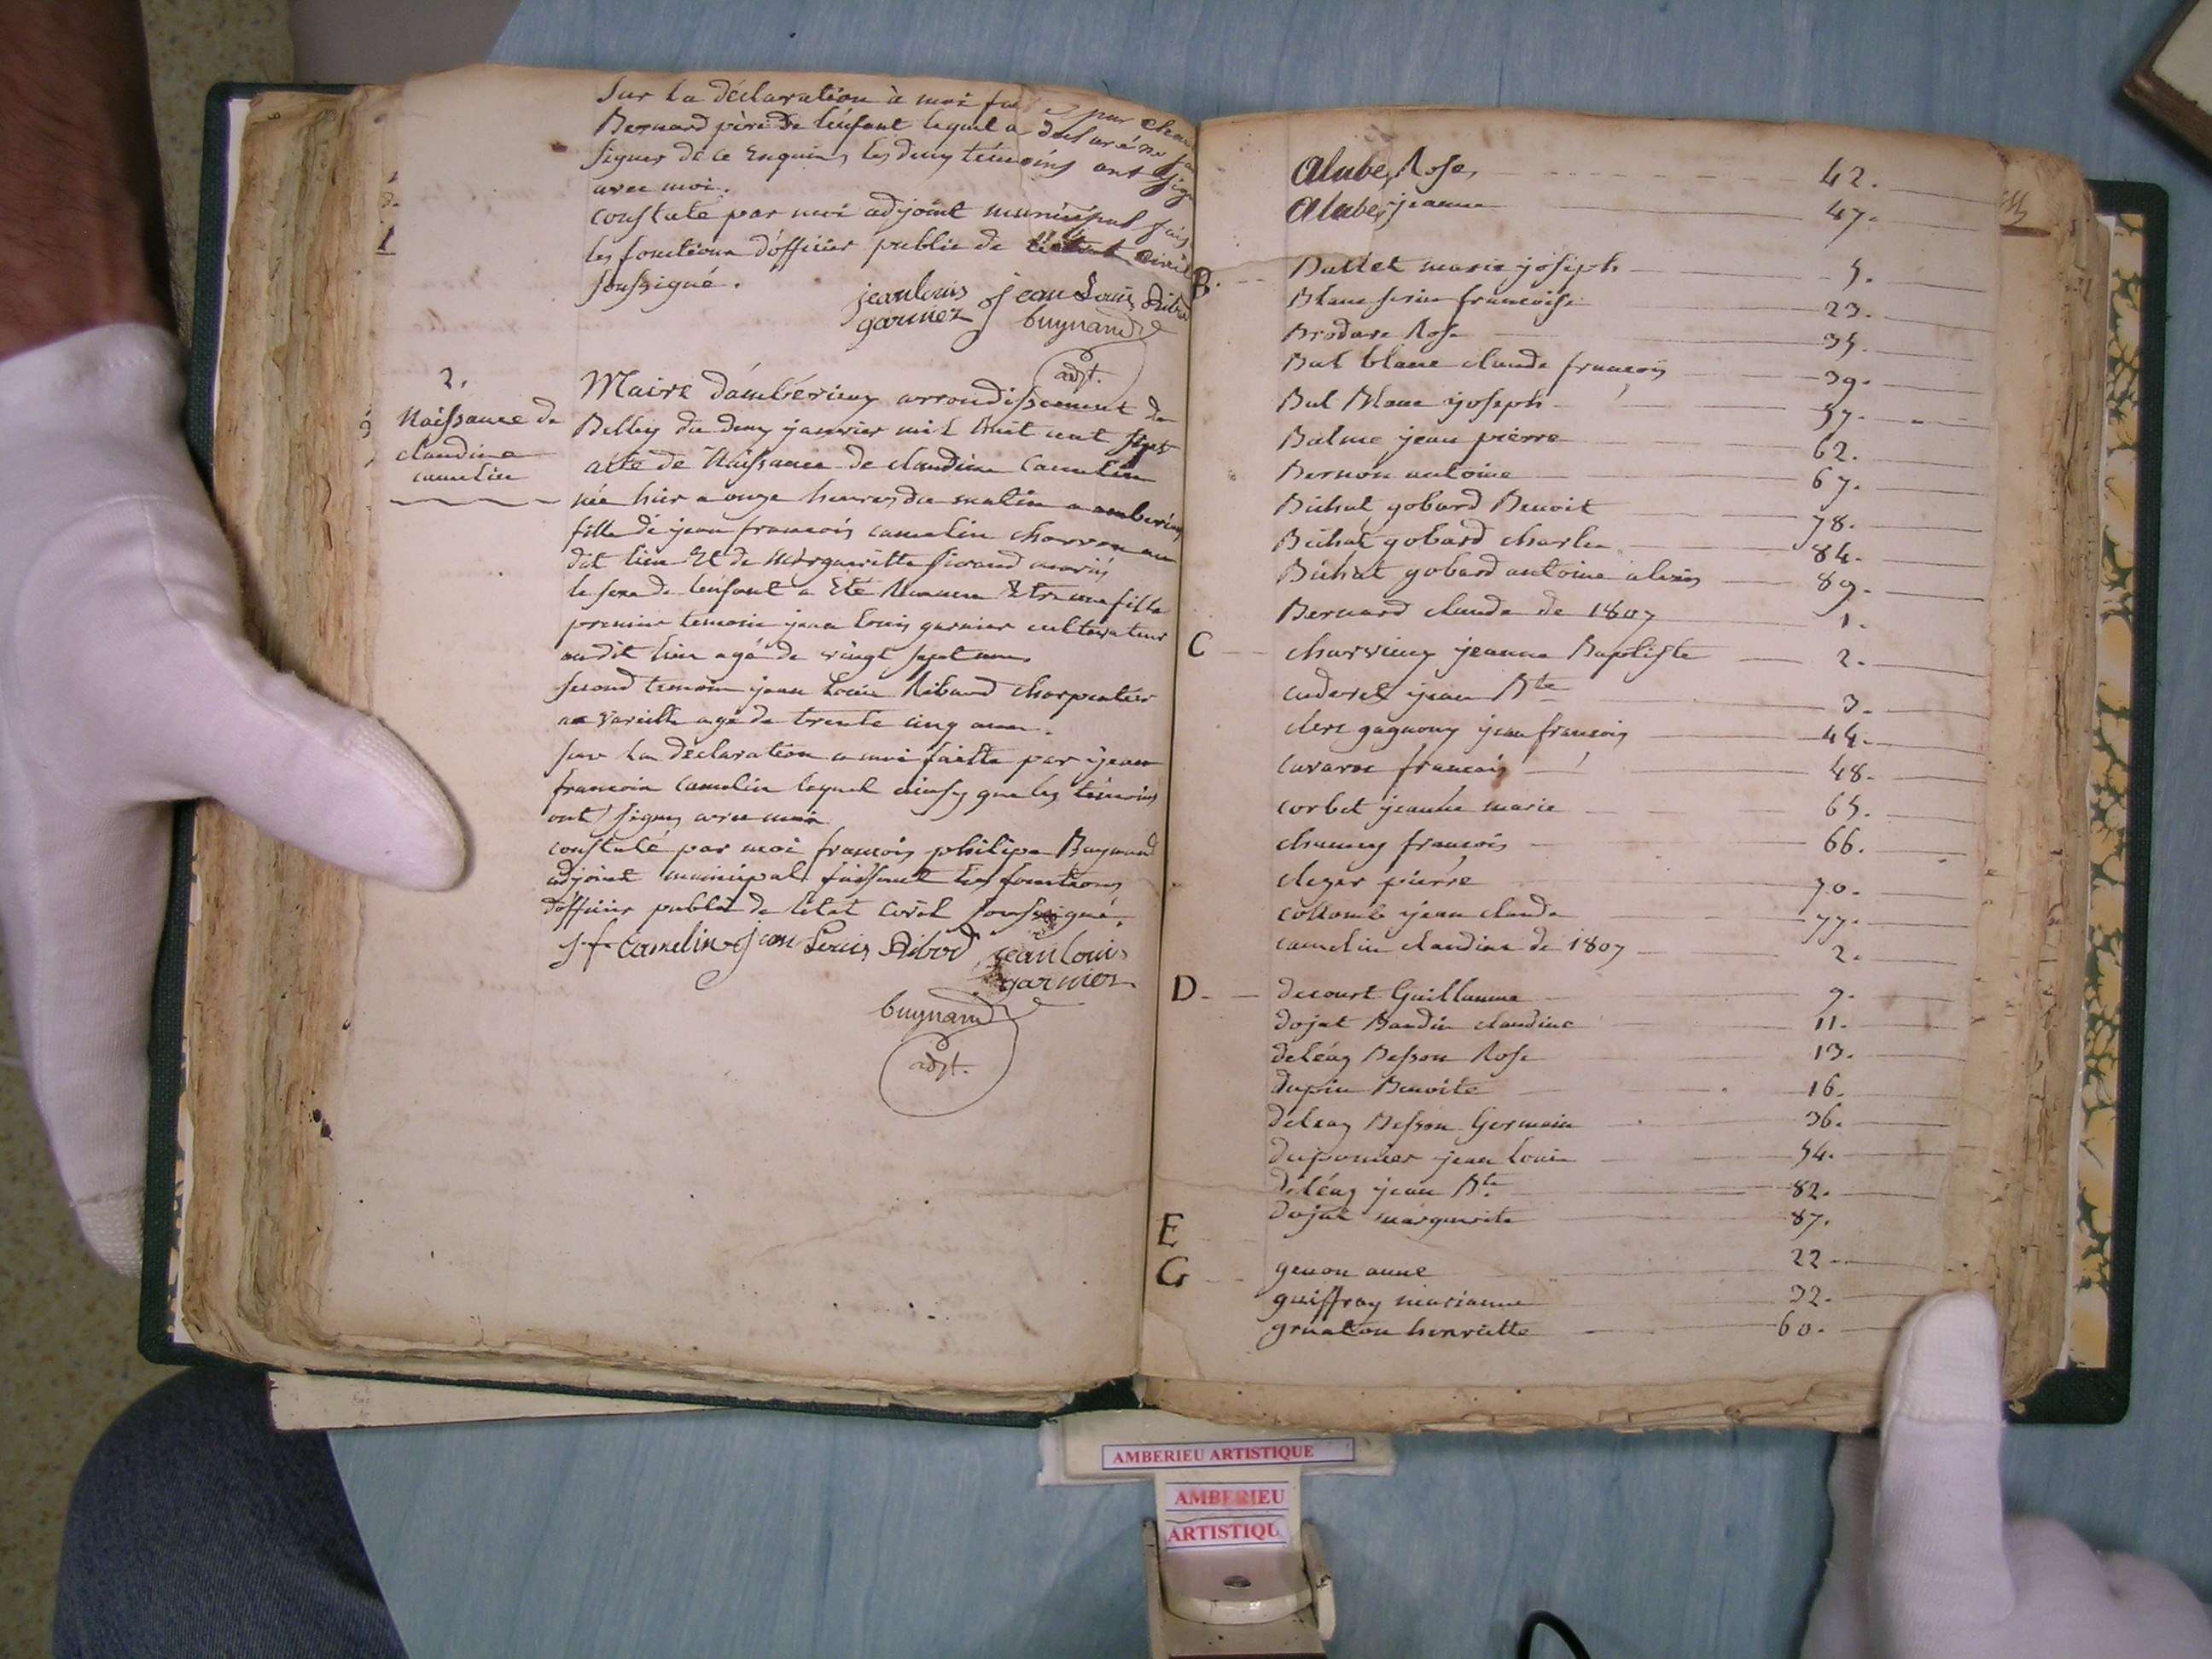 Sur la déclaration à moi faite par claude
Bernard père de l'enfant lequel a declaré ne
signer de ce Enquis, les deux témoins ont signé
avec moi.
constaté par moi adjoint municipal
les fonctions d'officier public de l'etat civil
soussigné.
jean louis jean Louis Ribod
garnier buynand
adjt.
2.
Naissance de
claudine
camelin
Maire d'ambérieux arrondissement de
Belley du deux janvier mil huit cent sept
acte de Naissance de claudine Camelin
née hier a onze heures du matin a amberieux
fille de jean francois camelin charron au
dit lieu Et de Margueritte sirand mariés
le sexe de l'enfant a Eté Reconnu Etre une fille
premier temoin jean louis garnier cultivateur
au dit lieu agé de vingt sept ans
second temoin jean louis Ribaud charpentier
a Vareille agé de trente cinq ans.
sur la déclaration a moi faitte par jean
francois camelin lequel ainsy que les témoins
ont signés avec moi
constaté par moi francois philipe Buynand
adjoint municipal faissant les fonctions
d'officier public de l'état civil soussigné.
j f camelin jean Louis Ribod jean louis
garnier
buynand
adjt.
Alabe, Rose, 42.
Alabe, jeanne 47.
B. Ballet marie joseph 5.
Blanc francoise 23.
Brodare Rose 35.
Bal blanc claude francois 39.
Bal Blanc joseph 57.
Balme jean pierre 62.
Bernon antoine 67.
Bichat gobard Benoit 78.
Bichat gobard charles 84.
Bichat gobard antoine alexis 89.
Bernard claude de 1807 1.
C charviney jeanne Baptiste 2.
jean Bte 3.
clerc gagnoux jean francois 44.
cavaroc francois 48.
corbet jeanne marie 65.
francois 66.
cleyer pierre 70.
collomb jean claude 77.
camelin claudine de 1807 2.
D. decourt Guillaume 9.
dojat Baudin claudine 11.
deléaz Besson Rose 13.
dupin Benoite 16.
deleaz Besson Germain 36.
duponier jean louis 54.
deléaz jean Bte 82.
dojat marguerite 87.
E
G genon anne 22
guiffray marianne 32.
gruaton henriette 60.
AMBERIEU ARTISTIQUE
AMBERIEU
ARTISTIQU